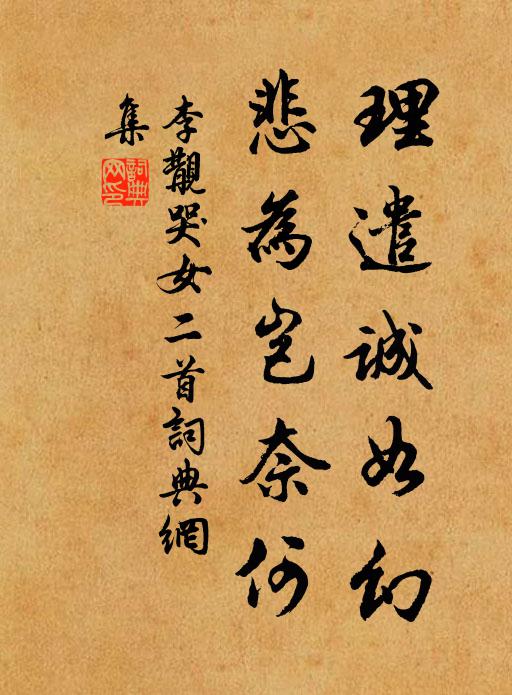 理遣誠如幻
悲為豈奈何
李覯哭女二首詞典網
集
詞典
网印